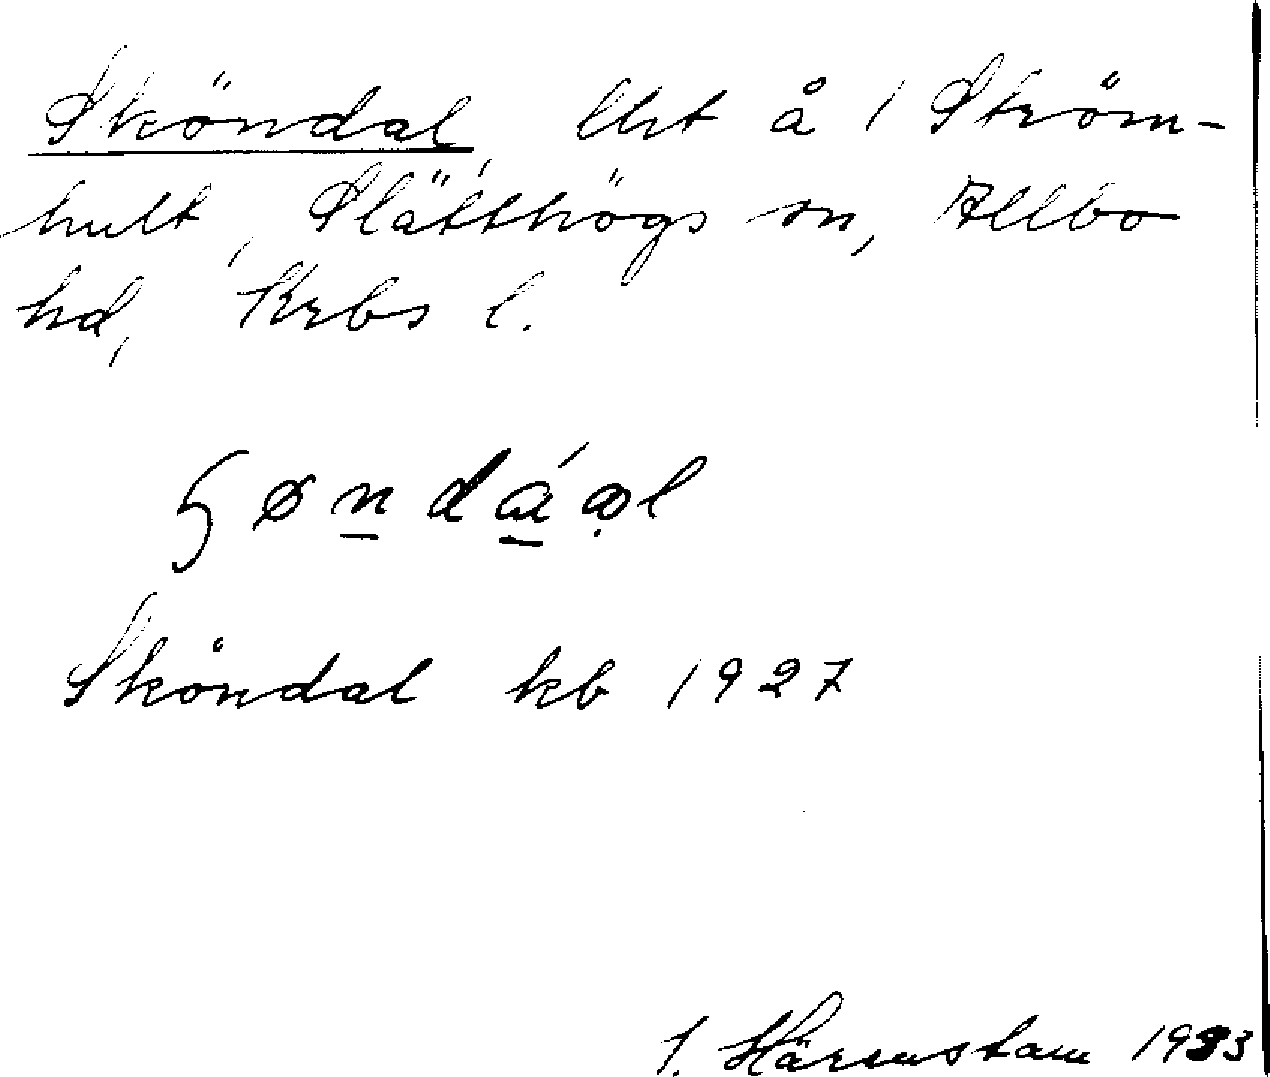 Sköndal, lht å 1 Ström-
hult, Slätthögs sn, Allbo
hd, Krbs l.
Sköndal kb 1927
S. Härenstam 1933